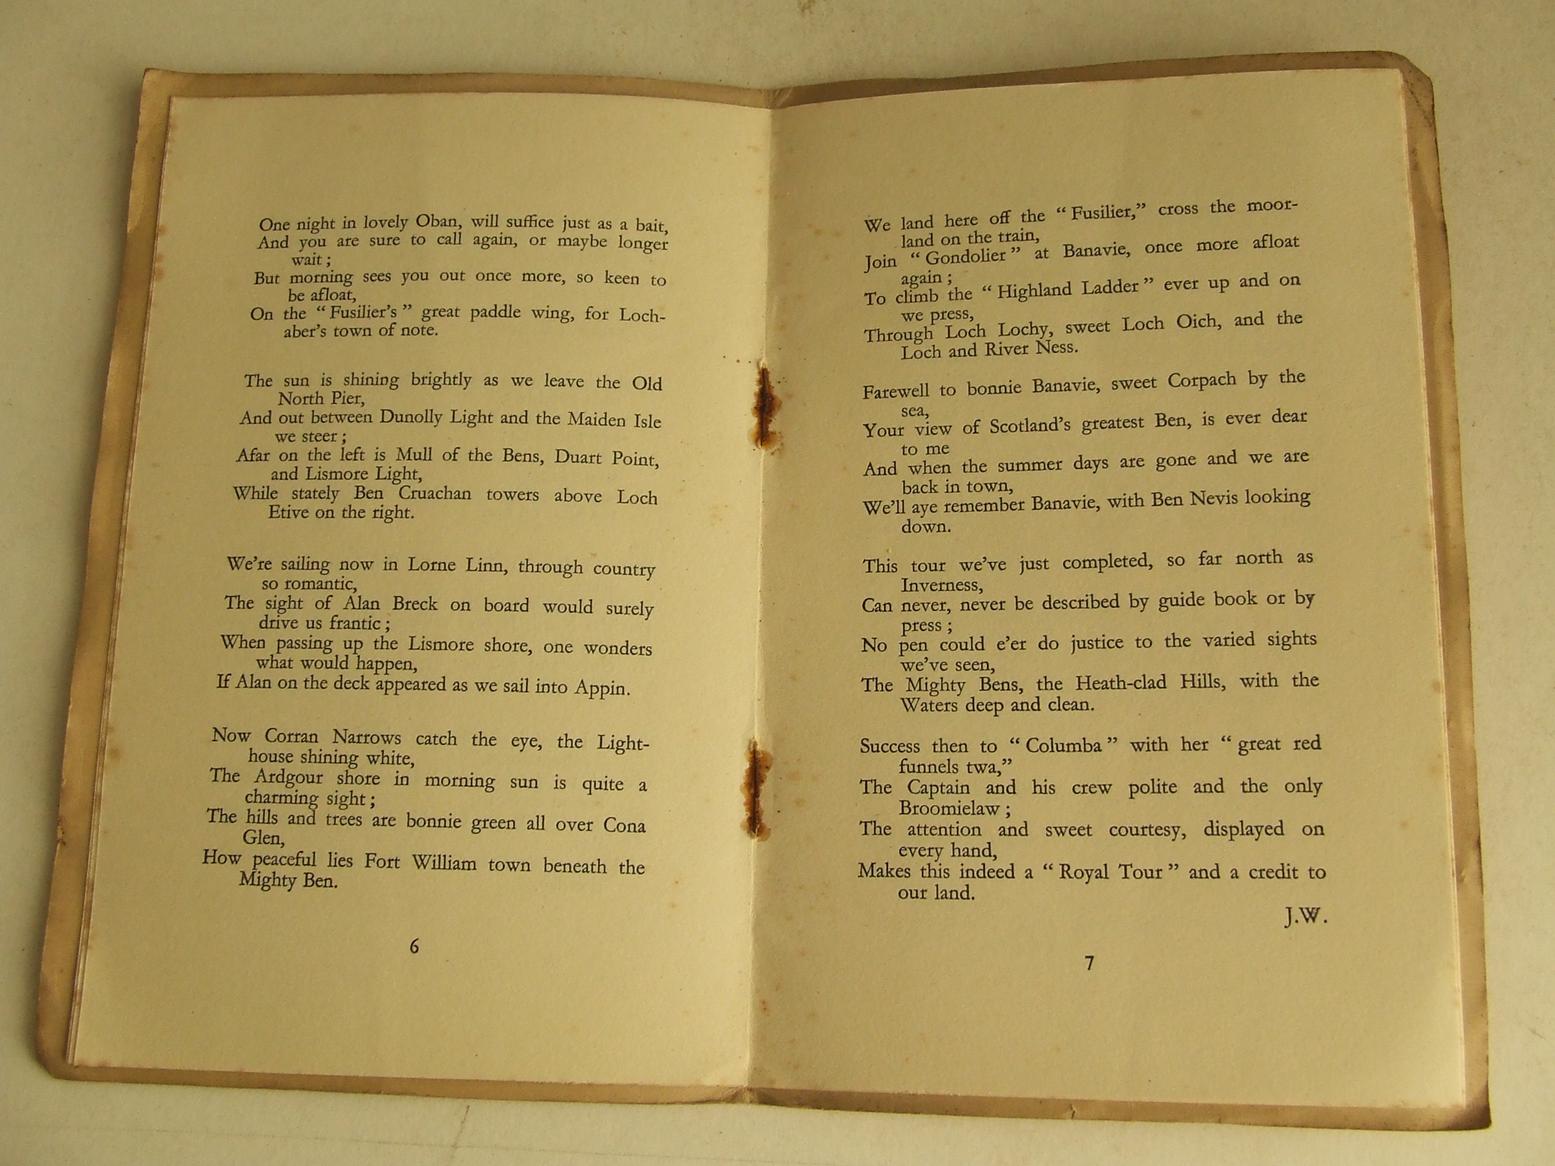 One night in lovely Oban, will suffice just as a bait,
And you are sure to call again, or maybe longer
wait ;
But morning sees you out once more, so keen to
be afloat,
On the “ Fusilier's ” great paddle wing, for Loch-
aber's town of note.
The sun is shining brightly as we leave the Old
North Pier,
And out between Dunolly Light and the Maiden Isle
we steer ;
Afar on the left is Mull of the Bens, Duart Point,
and Lismore Light,
While stately Ben Cruachan towers above Loch
Etive on the right.
We're sailing now in Lorne Linn, through country
so romantic,
The sight of Alan Breck on board would surely
drive us frantic ;
When passing up the Lismore shore, one wonders
what would happen,
If Alan on the deck appeared as we sail into Appin.
Now Corran Narrows catch the eye, the Light-
house shining white,
The Ardgour shore in morning sun is quite a
charming sight ;
The hills and trees are bonnie green all over Cona
Glen,
How peaceful lies Fort William town beneath the
Mighty Ben.
6
We land here off the “ Fusilier,” cross the moor-
land on the train,
Join “ Gondolier ” at Banavie, once more afloat
again ;
To climb the “ Highland Ladder ” ever up and on
we press,
Through Loch Lochy, sweet Loch Oich, and the
Loch and River Ness.
Farewell to bonnie Banavie, sweet Corpach by the
sea,
Your view of Scotland's greatest Ben, is ever dear
to me
And when the summer days are gone and we are
back in town,
We'll aye remember Banavie, with Ben Nevis looking
down.
This tour we've just completed, so far north as
Inverness,
Can never, never be described by guide book or by
press ;
No pen could e'er do justice to the varied sights
we've seen,
The Mighty Bens, the Heath-clad Hills, with the
Waters deep and clean.
Success then to “ Columba ” with her “ great red
funnels twa,”
The Captain and his crew polite and the only
Broomielaw ;
The attention and sweet courtesy, displayed on
every hand,
Makes this indeed a “ Royal Tour ” and a credit to
our land.
J.W.
7